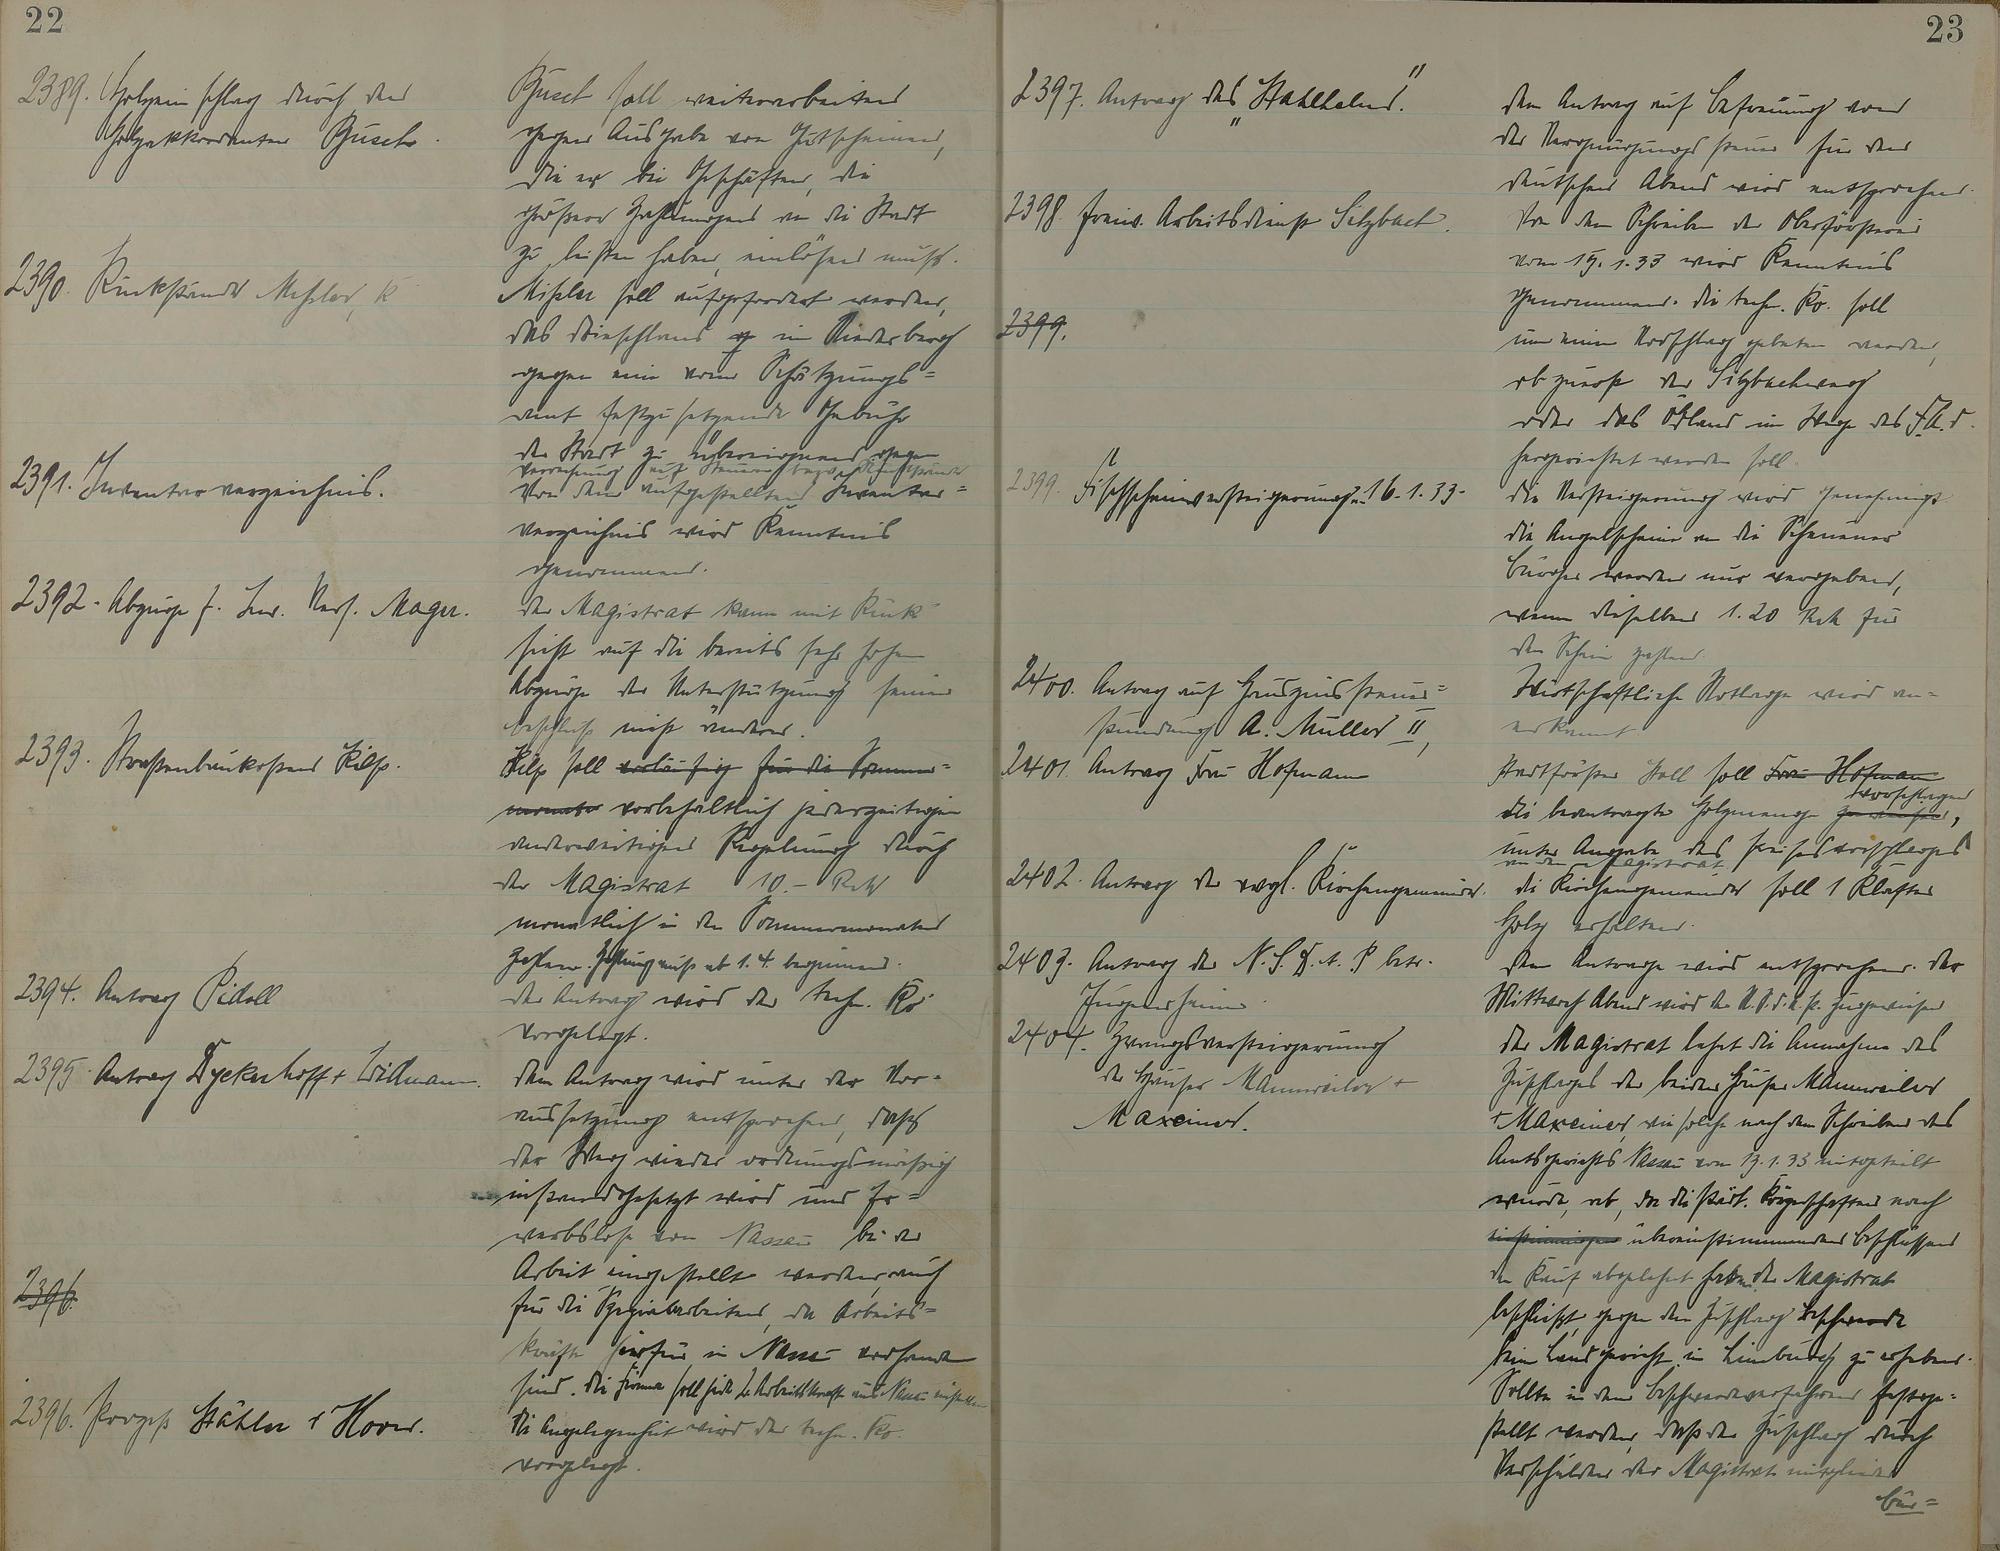 22
2389. Holzeinschlag durch den
Holzakkordanten Busch.
Busch soll weiterarbeiten
gegen Ausgabe von Gutscheinen,
die er bei Geschäften, die
größere Zahlungen an die Stadt
zu leisten haben, einlösen muß.
2390. Rückstände
soll aufgefordert werden,
das Wiesenland in
gegen eine vom Schätzungs=
amt festzusetzende Gebühr
der Stadt zu übereignen gegen
Verrechnung auf Steuern bezw. Rückstände
2391. Inventarverzeichnis.
Von dem aufgestellten Inventar=
verzeichnis wird Kenntnis
genommen.
2392. Abzüge f. Inv. Vers. Mager.
Der Magistrat kann mit Rück
sicht auf die bereits sehr hohen
Abzüge der Unterstützung seinen
Beschluß nicht ändern.
2393. Straßenbaukosten Kilp.
Kilp soll vorläufig für die Sommer=
monate vorbehaltlich jederzeitiger
anderweitiger Regelung durch
der Magistrat 10.- RM
monatlich in den Sommermonaten
zahlen. Zahlung muß ab 1.4. beginnen.
2394. Antrag Pidoll
Der Antrag wird der techn. Ko
vorgelegt.
2395. Antrag Dyckerhoff + Widmann.
Dem Antrag wird unter der Vor=
aussetzung entsprochen, daß
der Weg wieder ordnungsmäßig
instandgesetzt wird und Er=
werbslose von Nassau bei der
Arbeit eingestellt werden, auch
für die Spezialarbeiten, da Arbeits=
kräfte hierfür in Nassau vorhanden
sind. Die Firma soll jede 2. Arbeitskraft aus Nassau einstellen
2396.
2396. Prozeß Stähler & Hoover.
Die Angelegenheit wird der techn. Ko.
vorgelegt.
23
2397. Antrag des „Stahlhelms."
Dem Antrag auf Befreiung von
der Vergnügungssteuer für den
deutschen Abend wird entsprochen.
2398. Freiw. Arbeitsdienst Silzbach.
Von dem Schreiben der Oberförsterei
vom 19.1.33 wird Kenntnis
genommen. Die techn. Ko. soll
um einen Vorschlag gebeten werden,
ob zuerst der Silzbachweg
oder das Ödland im Wege des F.A.d.
hergerichtet werden soll.
2399.
2399. Fischscheinversteigerung v. 16.1.33.
Die Versteigerung wird genehmigt
die Angelscheine an die Scheuerer
Bürger werden nur vergeben,
wenn dieselben 1.20 RM für
den Schein zahlen.
2400. Antrag auf Hauszinssteuer=
stundung A. Müller II,
Wirtschaftliche Notlage wird an=
erkannt
2401. Antrag Frau Hofmann
Stadtförster Stoll soll Frau Hofmann
die beantragte Holzmenge vorschlagen,
unter Angabe des Preisvorschlages
an den Magistrat
2402. Antrag der evgl. Kirchengemeinde.
Die Kirchengemeinde soll 1 Klafter
Holz erhalten.
2403. Antrag der N.S.D.A.P betr.
Jugendheim.
Dem Antrage wird entsprochen. Der
Mittwoch Abend wird der N.S.d.A.P. zugewiesen
2404. Zwangsversteigerung
der Häuser Mannweiler +
Maxeiner.
Der Magistrat lehnt die Annahme des
Zuschlages der beiden Häuser Mannweiler
+ Maxeiner, wie solche nach dem Schreiben des
Amtsgerichts Nassau vom 13.1.33 mitgeteilt
wurde, ab, da die städt. Körperschaften nach
einstimmigen übereinstimmenden Beschlüssen
den Kauf abgelehnt haben. Der Magistrat
beschließt, gegen den Zuschlag Beschwerde
beim Landgericht in Limburg zu erheben.
Sollte in dem Beschwerdeverfahren festge=
stellt werden, daß der Zuschlag durch
Verschulden der Magistratsmitglieder
bür=